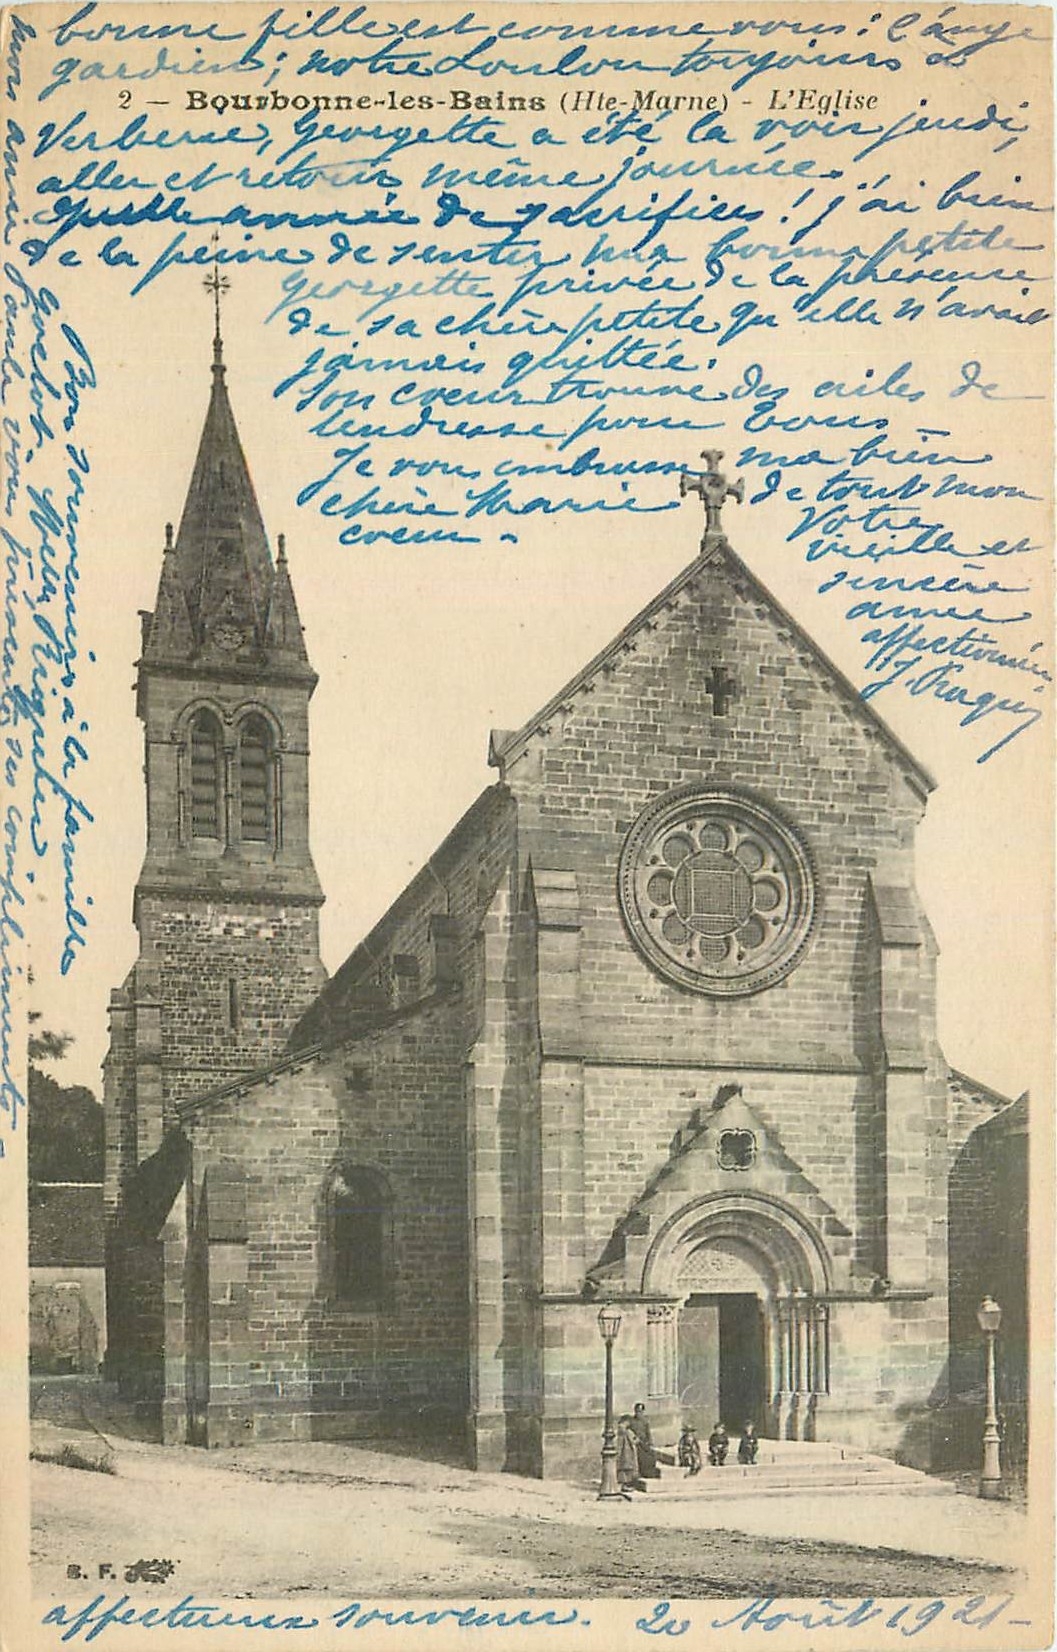 bonne fille est comme vous : l'ange
gardien ; notre Loulou toujours à
2 — Bourbonne-les-Bains (Hte-Marne) - L'Eglise
Verberie, Georgette a été la voir jeudi,
aller et retour même journée.
Quelle année de sacrifices ! j'ai bien
de la peine de sentir ma bonne petite
Georgette privée de la présence
de sa chère petite qu'elle n'avait
jamais quittée.
Son coeur trouve des ailes de
tendresse pour vous
Je vous embrasse ma bien
chère Marie de tout mon
coeur -
Votre
vieille et
sincère
amie
affectionnée
J.
Bons souvenirs à la famille
Mon amie Paule vous présente ses compliments -
B. F.
affectueux souvenir. 20 Août 1921 -